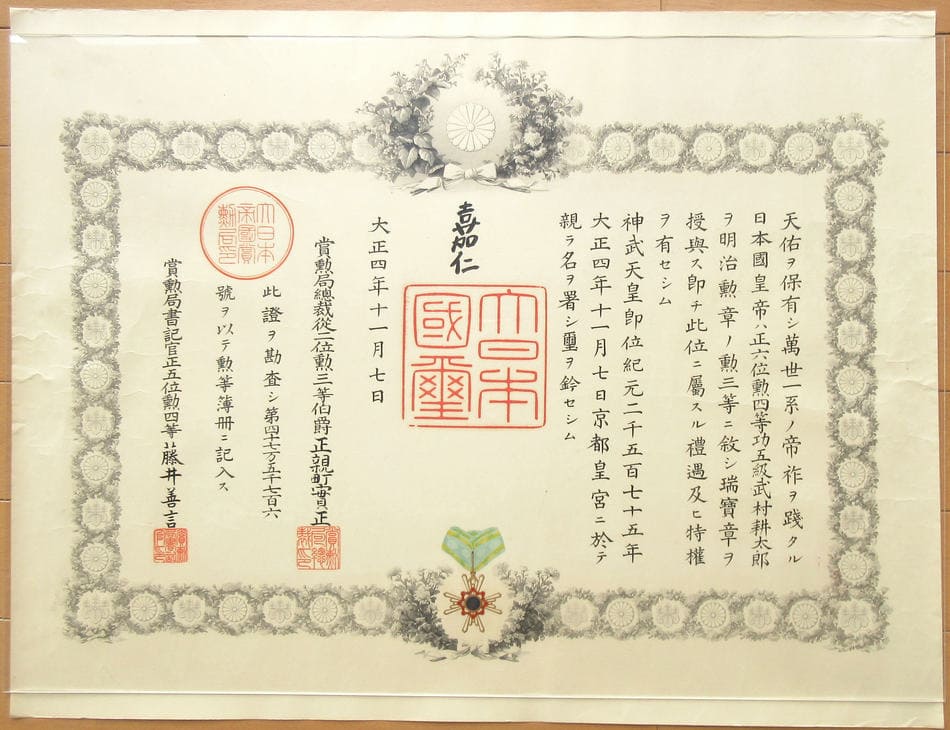 天佑ヲ保有シ萬世一系ノ帝祚ヲ踐タル
日本國皇帝ハ正六位勲四等功五級武村耕太郎
ヲ明治勲章ノ勲三等ニ敘シ瑞寶章ヲ
授與ス即チ此位ニ屬スル禮遇及ヒ特權
ヲ有セシム
神武天皇即位紀元二千五百七十五年
大正四年十一月七日京都皇宮ニ於テ
親ラ名ヲ署シ璽ヲ鈐セシム
嘉仁
大日本
國璽
大正四年十一月七日
賞勲局總裁從二位勲三等伯爵正親町實正
此證ヲ勘査シ第四十七万五千七百六
號ヲ以テ勲等簿册ニ記入ス
大日本
帝國賞
勲局印
賞勲局書記官正五位勲四等藤井善言